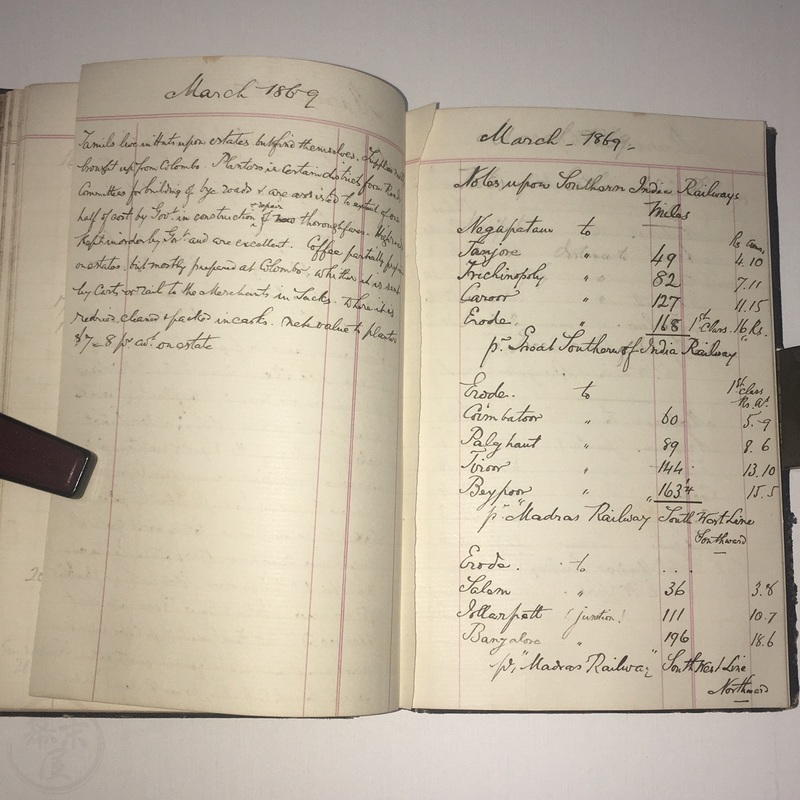 March 1869
Tamils live in Huts upon estates but find themselves.
brought up from Colombo. Planters in certain districts form Road
Committees for building of bye roads & are assisted to extent of one
half of cost by Govt. in construction & repair of thoroughfares.
Kept in order by Govt. and are excellent. Coffee partially
on estates but mostly prepared at Colombo, whither it is sent
by Carts or rail to the Merchants in Sacks. Where it is
redried cleaned & packed in casks. value to planter
$7–8 pr cwt. on estate
March – 1869 –
Notes upon Southern India Railways
Miles
Nagapatam to Rs Ans.
Tanjore " 49 4.10
Trichinopoly " 82 7.11
Caroor " 127 11.15
Erode. " 168 1st Class. 16 Rs.
pr. Great Southern of India Railway
Erode. to 1st Class
Rs. As.
Coimbatoor " 60 5.9
Palghaut " 89 8.6
Tiroor " 144 13.10
Beypoor " 163¼ 15.5
pr. "Madras Railway" South West Line
Southward
Erode. to ...
Salem " 36 3.8
Jollarpett (junction) 111 10.7
Bangalore " 196 18.6
pr. "Madras Railway" South West Line
Northward